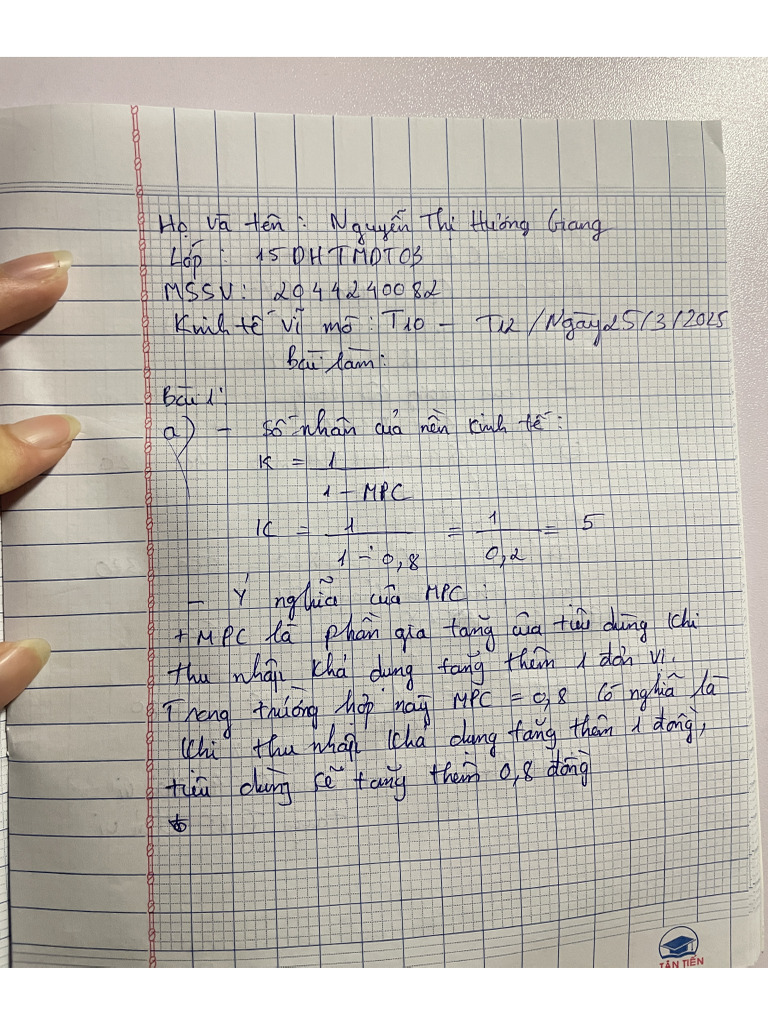 Họ và tên : Nguyễn Thị Hương Giang
Lớp : 15DHTMDT03
MSSV : 2044240082
Kinh tế vĩ mô : T10 - T12 / Ngày 25/3/2025
Bài làm :
Bài 1 :
a) - Số nhân của nền kinh tế :
K = 1 / 1 - MPC
K = 1 / 1 - 0,8 = 1 / 0,2 = 5
- Ý nghĩa của MPC :
+ MPC là phần gia tăng của tiêu dùng khi
thu nhập khả dụng tăng thêm 1 đơn vị.
Trong trường hợp này MPC = 0,8 có nghĩa là
khi thu nhập khả dụng tăng thêm 1 đồng,
tiêu dùng sẽ tăng thêm 0,8 đồng
TÂN TIẾN